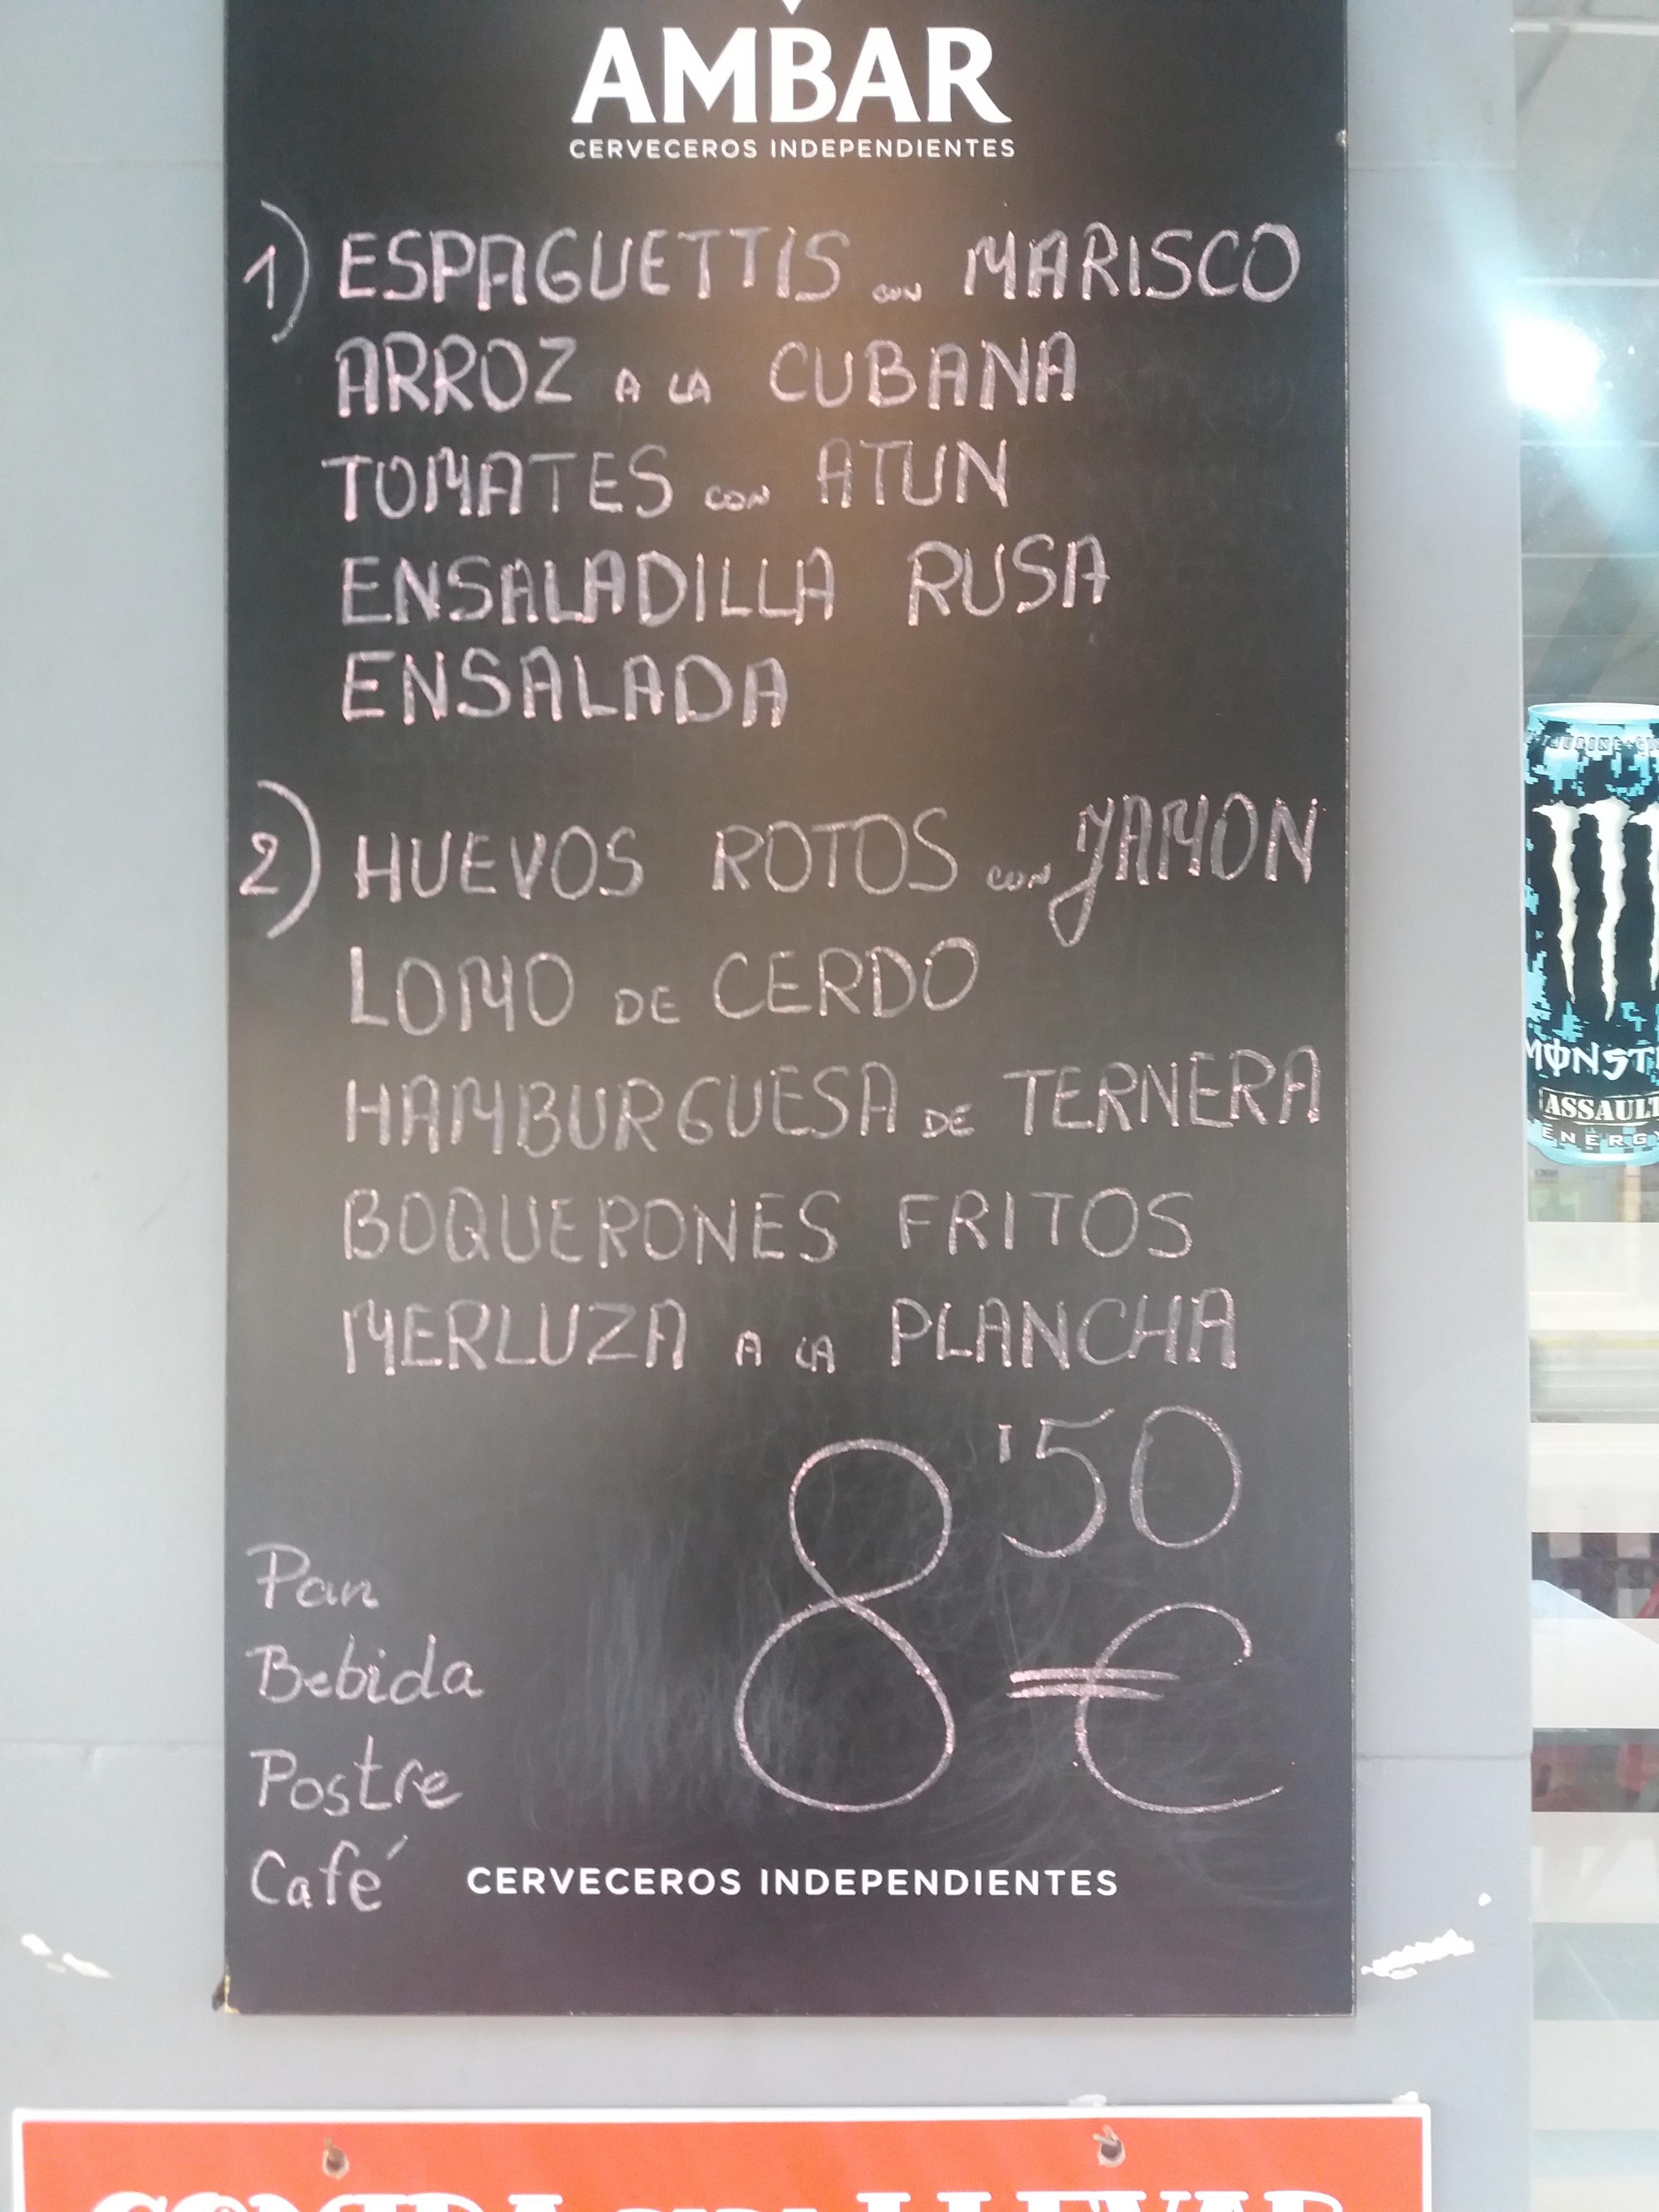 AMBAR
CERVECEROS INDEPENDIENTES
1) ESPAGUETTIS con MARISCO
ARROZ A LA CUBANA
TOMATES con ATUN
ENSALADILLA RUSA
ENSALADA
2) HUEVOS ROTOS con JAMON
LOMO DE CERDO
HAMBURGUESA DE TERNERA
BOQUERONES FRITOS
MERLUZA A LA PLANCHA
8'50 €
Pan
Bebida
Postre
Café
CERVECEROS INDEPENDIENTES
ASSAULT